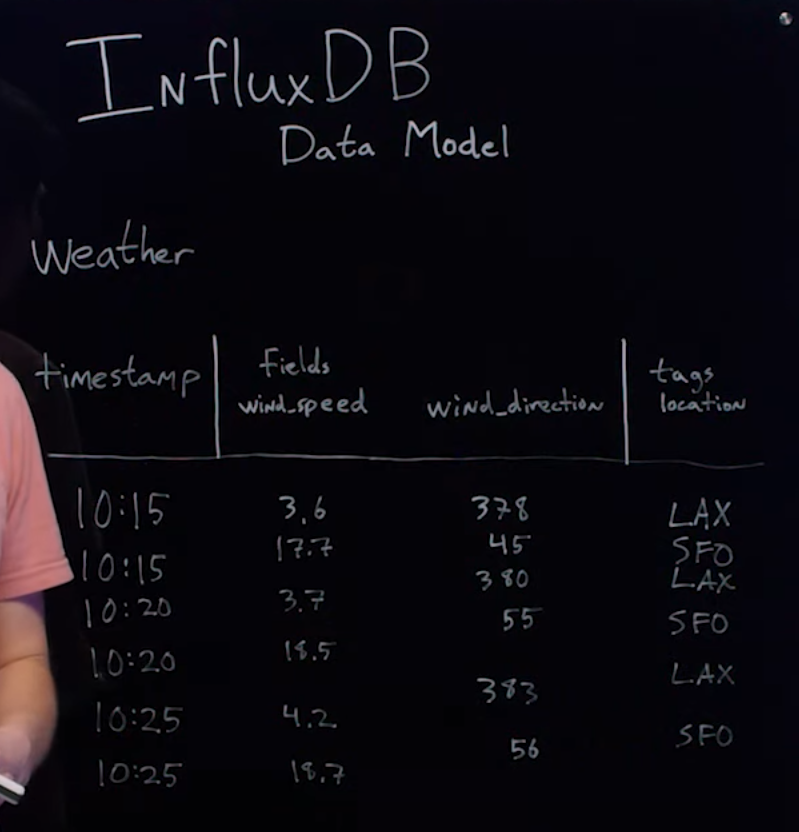 InfluxDB
Data Model
Weather
timestamp fields tags
wind_speed wind_direction location
10:15 3.6 378 LAX
10:15 17.7 45 SFO
10:20 3.7 380 LAX
10:20 18.5 55 SFO
10:25 4.2 383 LAX
10:25 18.7 56 SFO